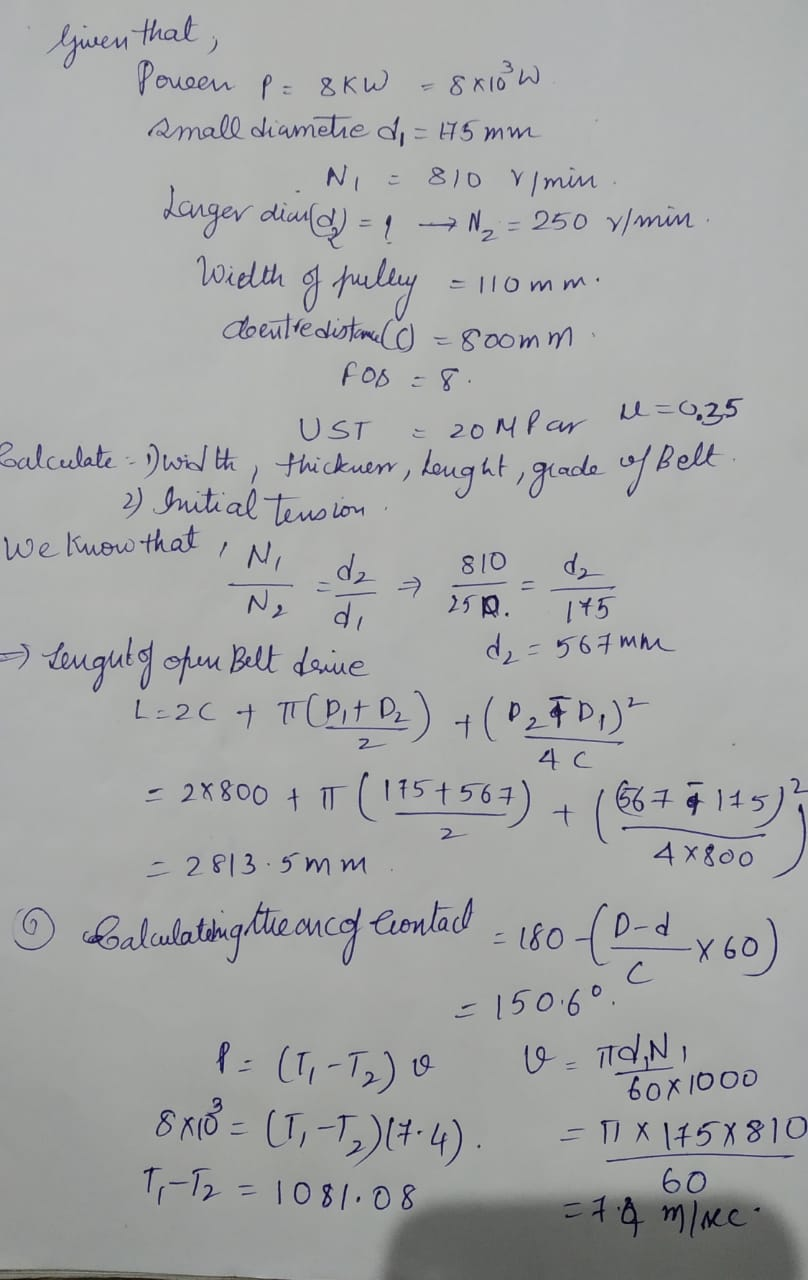 Given that,
Poweer P = 8KW = 8×10³W
Small diametre d₁ = 175 mm
N₁ = 810 r/min.
Larger dia(d₂) = ? → N₂ = 250 r/min.
Width of pulley = 110 mm.
Centre distance(C) = 800mm.
FOS = 8.
UST = 20 MPa μ = 0.35
Calculate - 1) width, thickness, lenght, grade of Belt.
2) Initial Tension.
We know that, N₁/N₂ = d₂/d₁ ⇒ 810/250. = d₂/175
d₂ = 567 mm
⇒ Lenght of open Belt drive
L = 2C + π(D₁+D₂/2) + (D₂-D₁)²/4C
= 2×800 + π(175+567/2) + (567-175)²/4×800
= 2813.5mm.
⑥ Calculating the arc of Contact = 180 - (D-d/C × 60)
= 150.6°.
P = (T₁-T₂) v v = πd₁N₁/60×1000
8×10³ = (T₁-T₂)(7.4). = π×175×810/60
T₁-T₂ = 1081.08 = 7.4 m/sec.